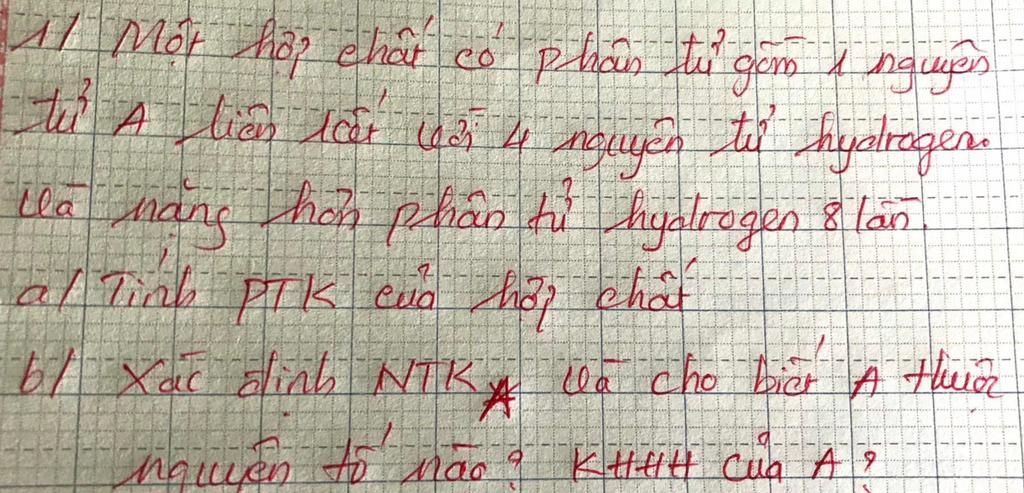 1/ Một hợp chất có phân tử gồm 1 nguyên
tử A liên kết với 4 nguyên tử hydrogen
và nặng hơn phân tử hydrogen 8 lần.
a/ Tính PTK của hợp chất
b/ Xác định NTK A và cho biết A thuộc
nguyên tố nào? KHHH của A?